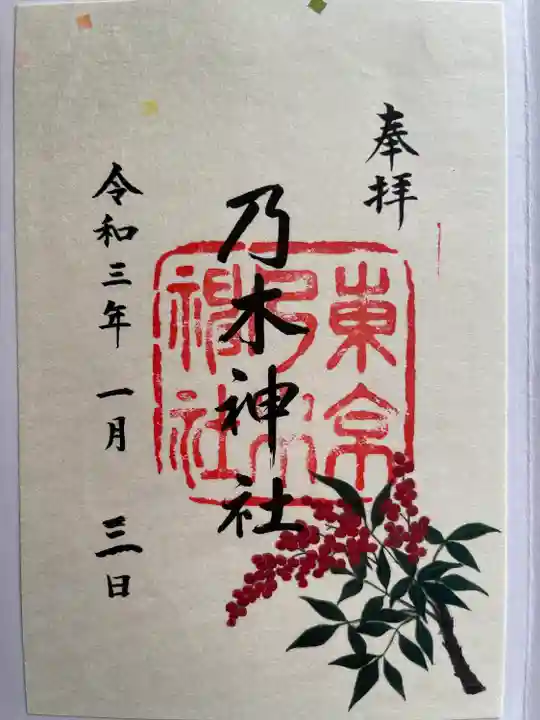 奉拝
乃木神社
東京
乃木
神社
令和三年 一月 三日